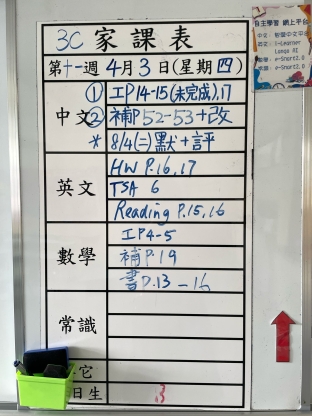 3C 家課表
第十一週 4月3日(星期四)
中文
① 工P14-15(未完成),17
② 補P52-53+改
* 8/4(二)默+評
英文
HW P.16,17
TSA 6
Reading P.15,16
數學
工P4-5
補P.19
書P.13-16
常識
它
日生
3
自主學習 網上平台
i-Learner
e-Smart2.0
e-Smart2.0